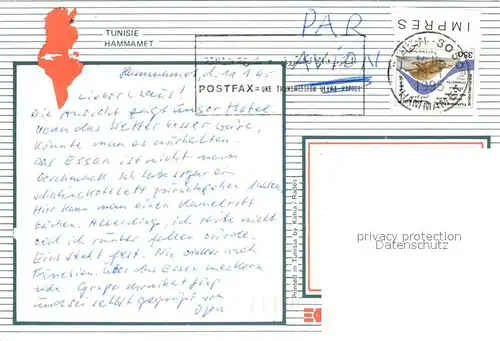 TUNISIE
HAMMAMET
PAR
AVION
IMPRES
350
POSTFAX = UNE TRANSMISSION ULTRA-RAPIDE
HAMMAMET
1995
Hammamet, d. 11.1.95
Lieber Klaus!
Die Ansicht zeigt unser Hotel.
Wenn das Wetter besser wäre,
könnte man es aushalten.
Das Essen ist nicht mein
Geschmack. Ich habe sogar ein
Schweinekotelett zurückgehen lassen.
Hier kann man einen Kamelritt
buchen. Allerdings, ich reite nicht
weil ich runter fallen würde.
Eins steht fest. Nie wieder nach
Tunesien. Über das Essen meckern
viele.
und sei selbst gegrüßt von
Opa
Printed in Tunisia by Kahia / Rades
privacy protection
Datenschutz